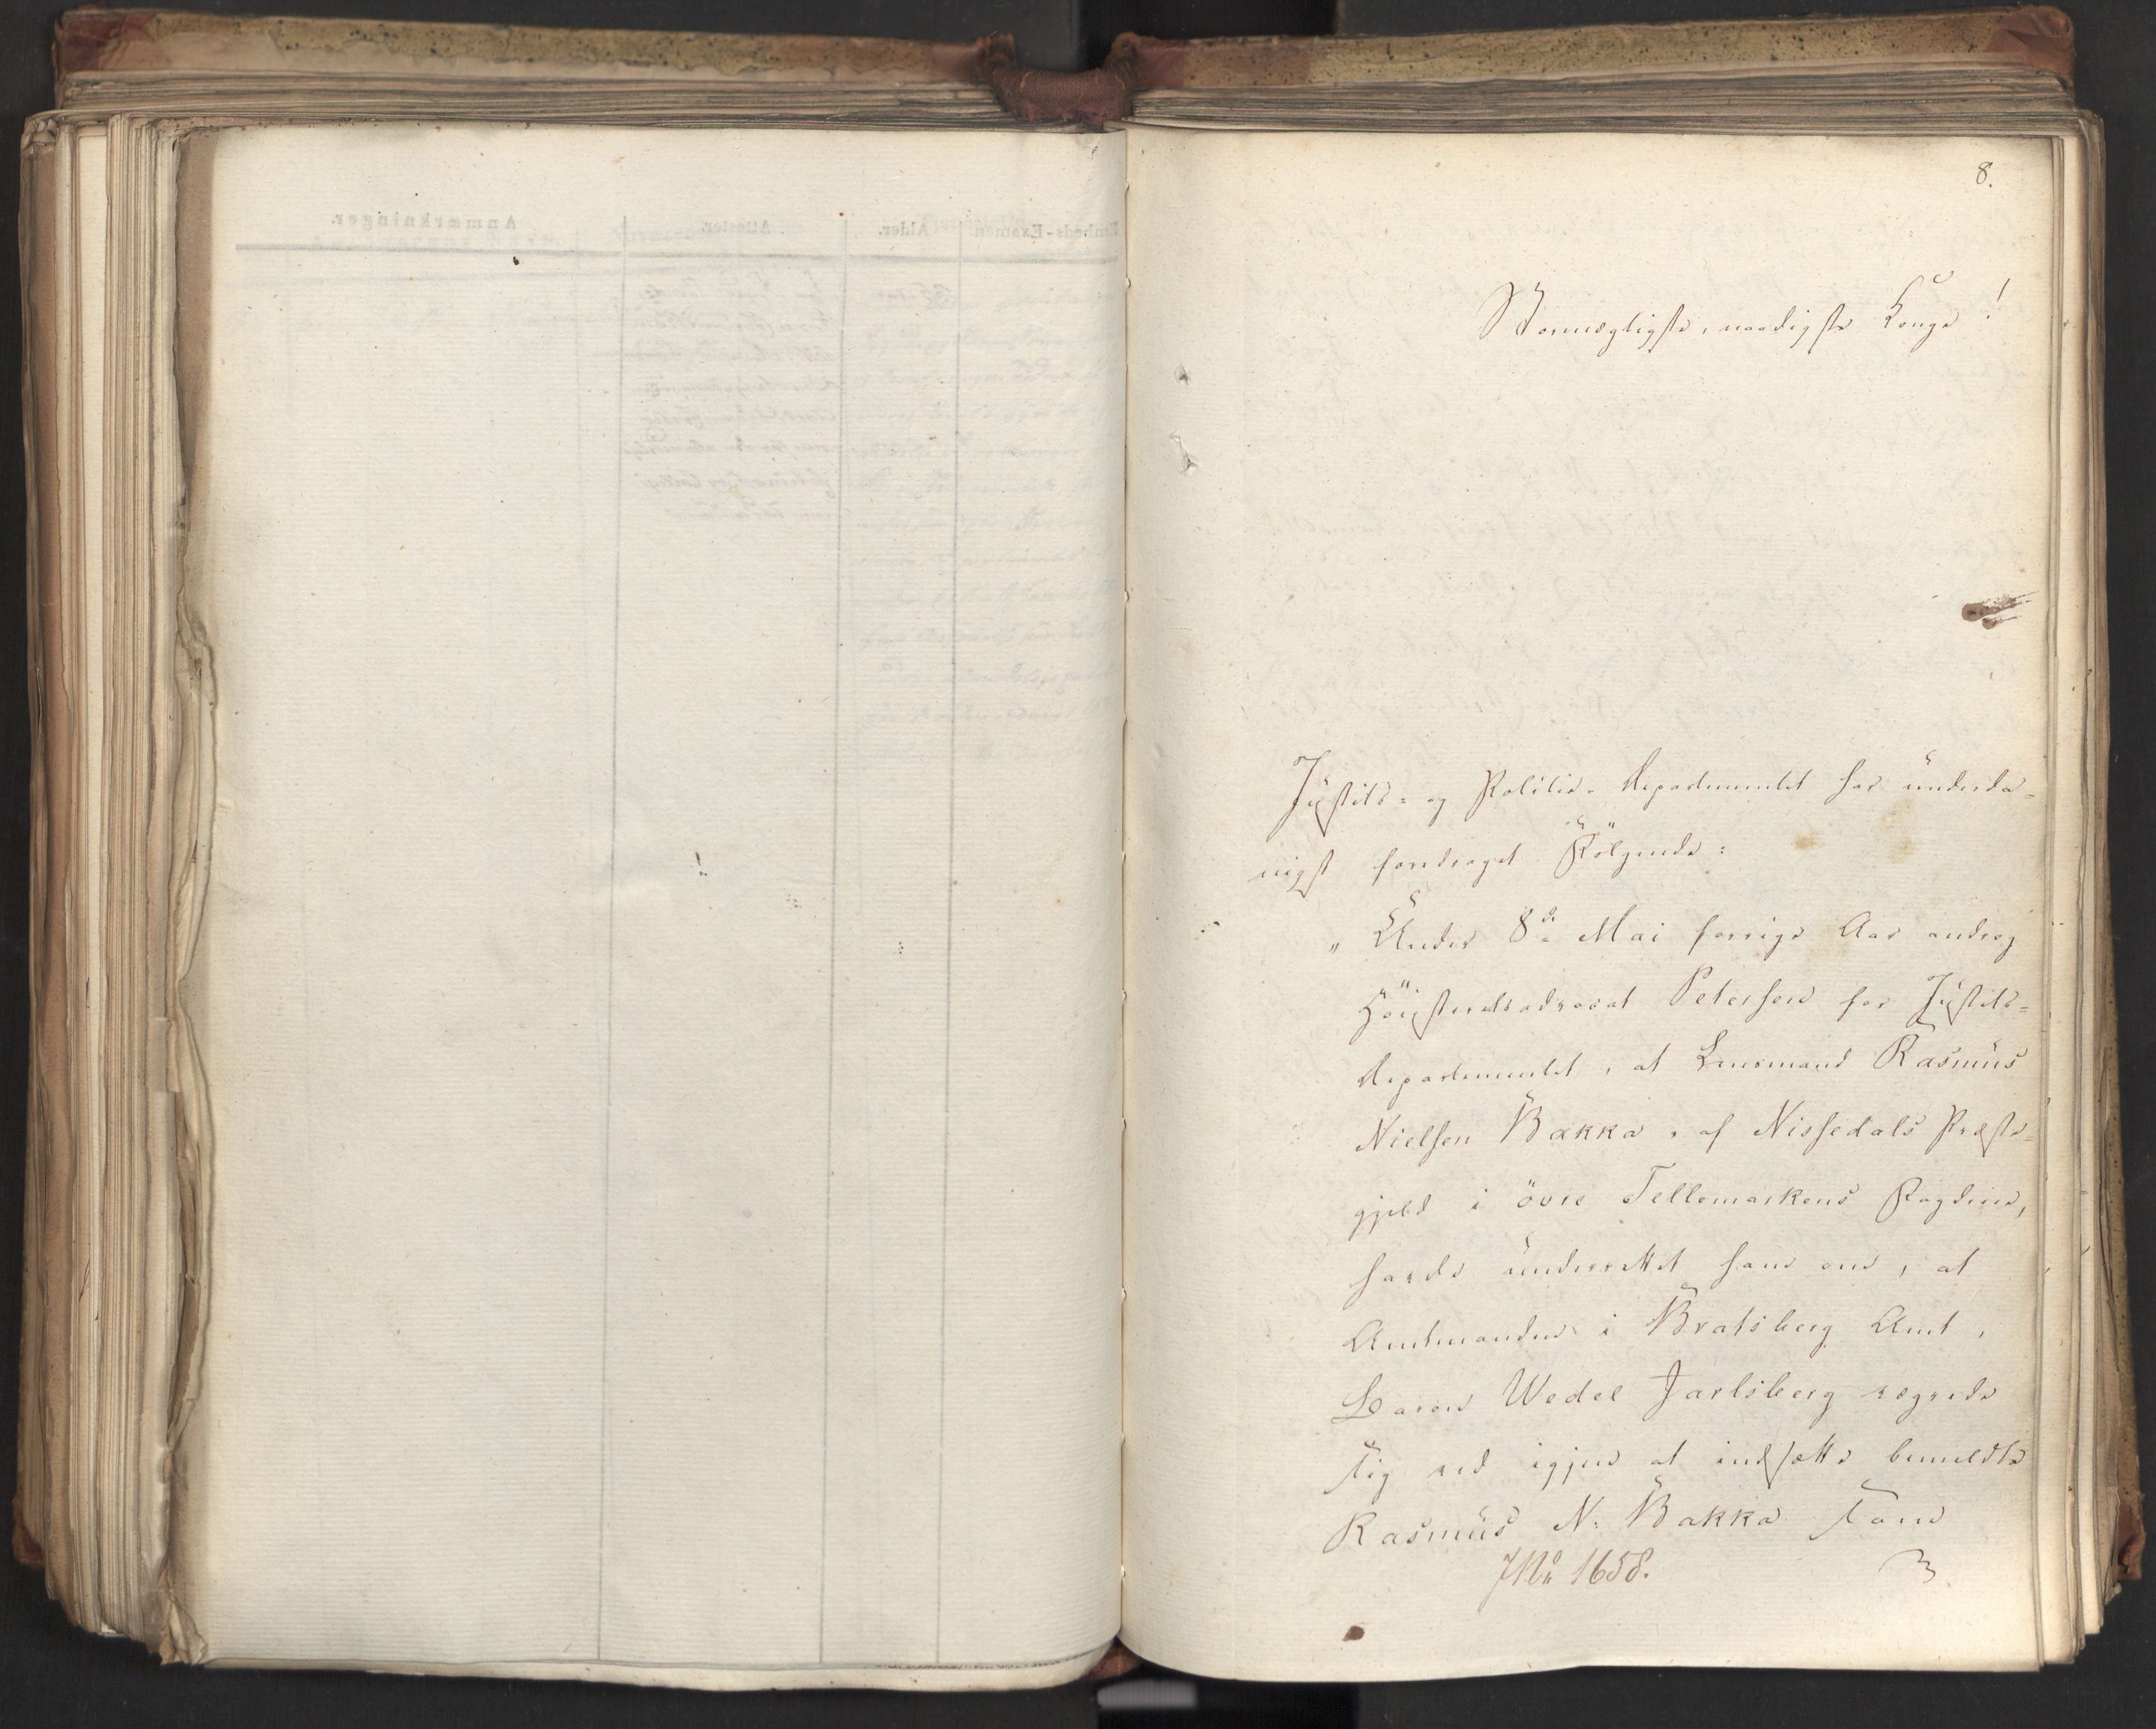 8.
Stormægtigste, naadigste Konge!
Justits- og Politie-Departementet har underda-
nigst foredraget Følgende:
„Under 8de Mai forrige Aar androg
Høiesteretsadvocat Petersen for Justits-
departementet, at Lensmand Rasmus
Nielsen Bakka, af Nissedals Præste-
gjeld i øvre Tellemarkens Fogderie,
havde underrettet ham om, at
Amtmanden i Bratsberg Amt,
Baron Wedel Jarlsberg vægrede
sig ved igjen at indsætte bemeldte
Rasmus N. Bakka som
JNo 1658.
Embeds-Examen.
Alder.
Attester.
Anmærkninger.